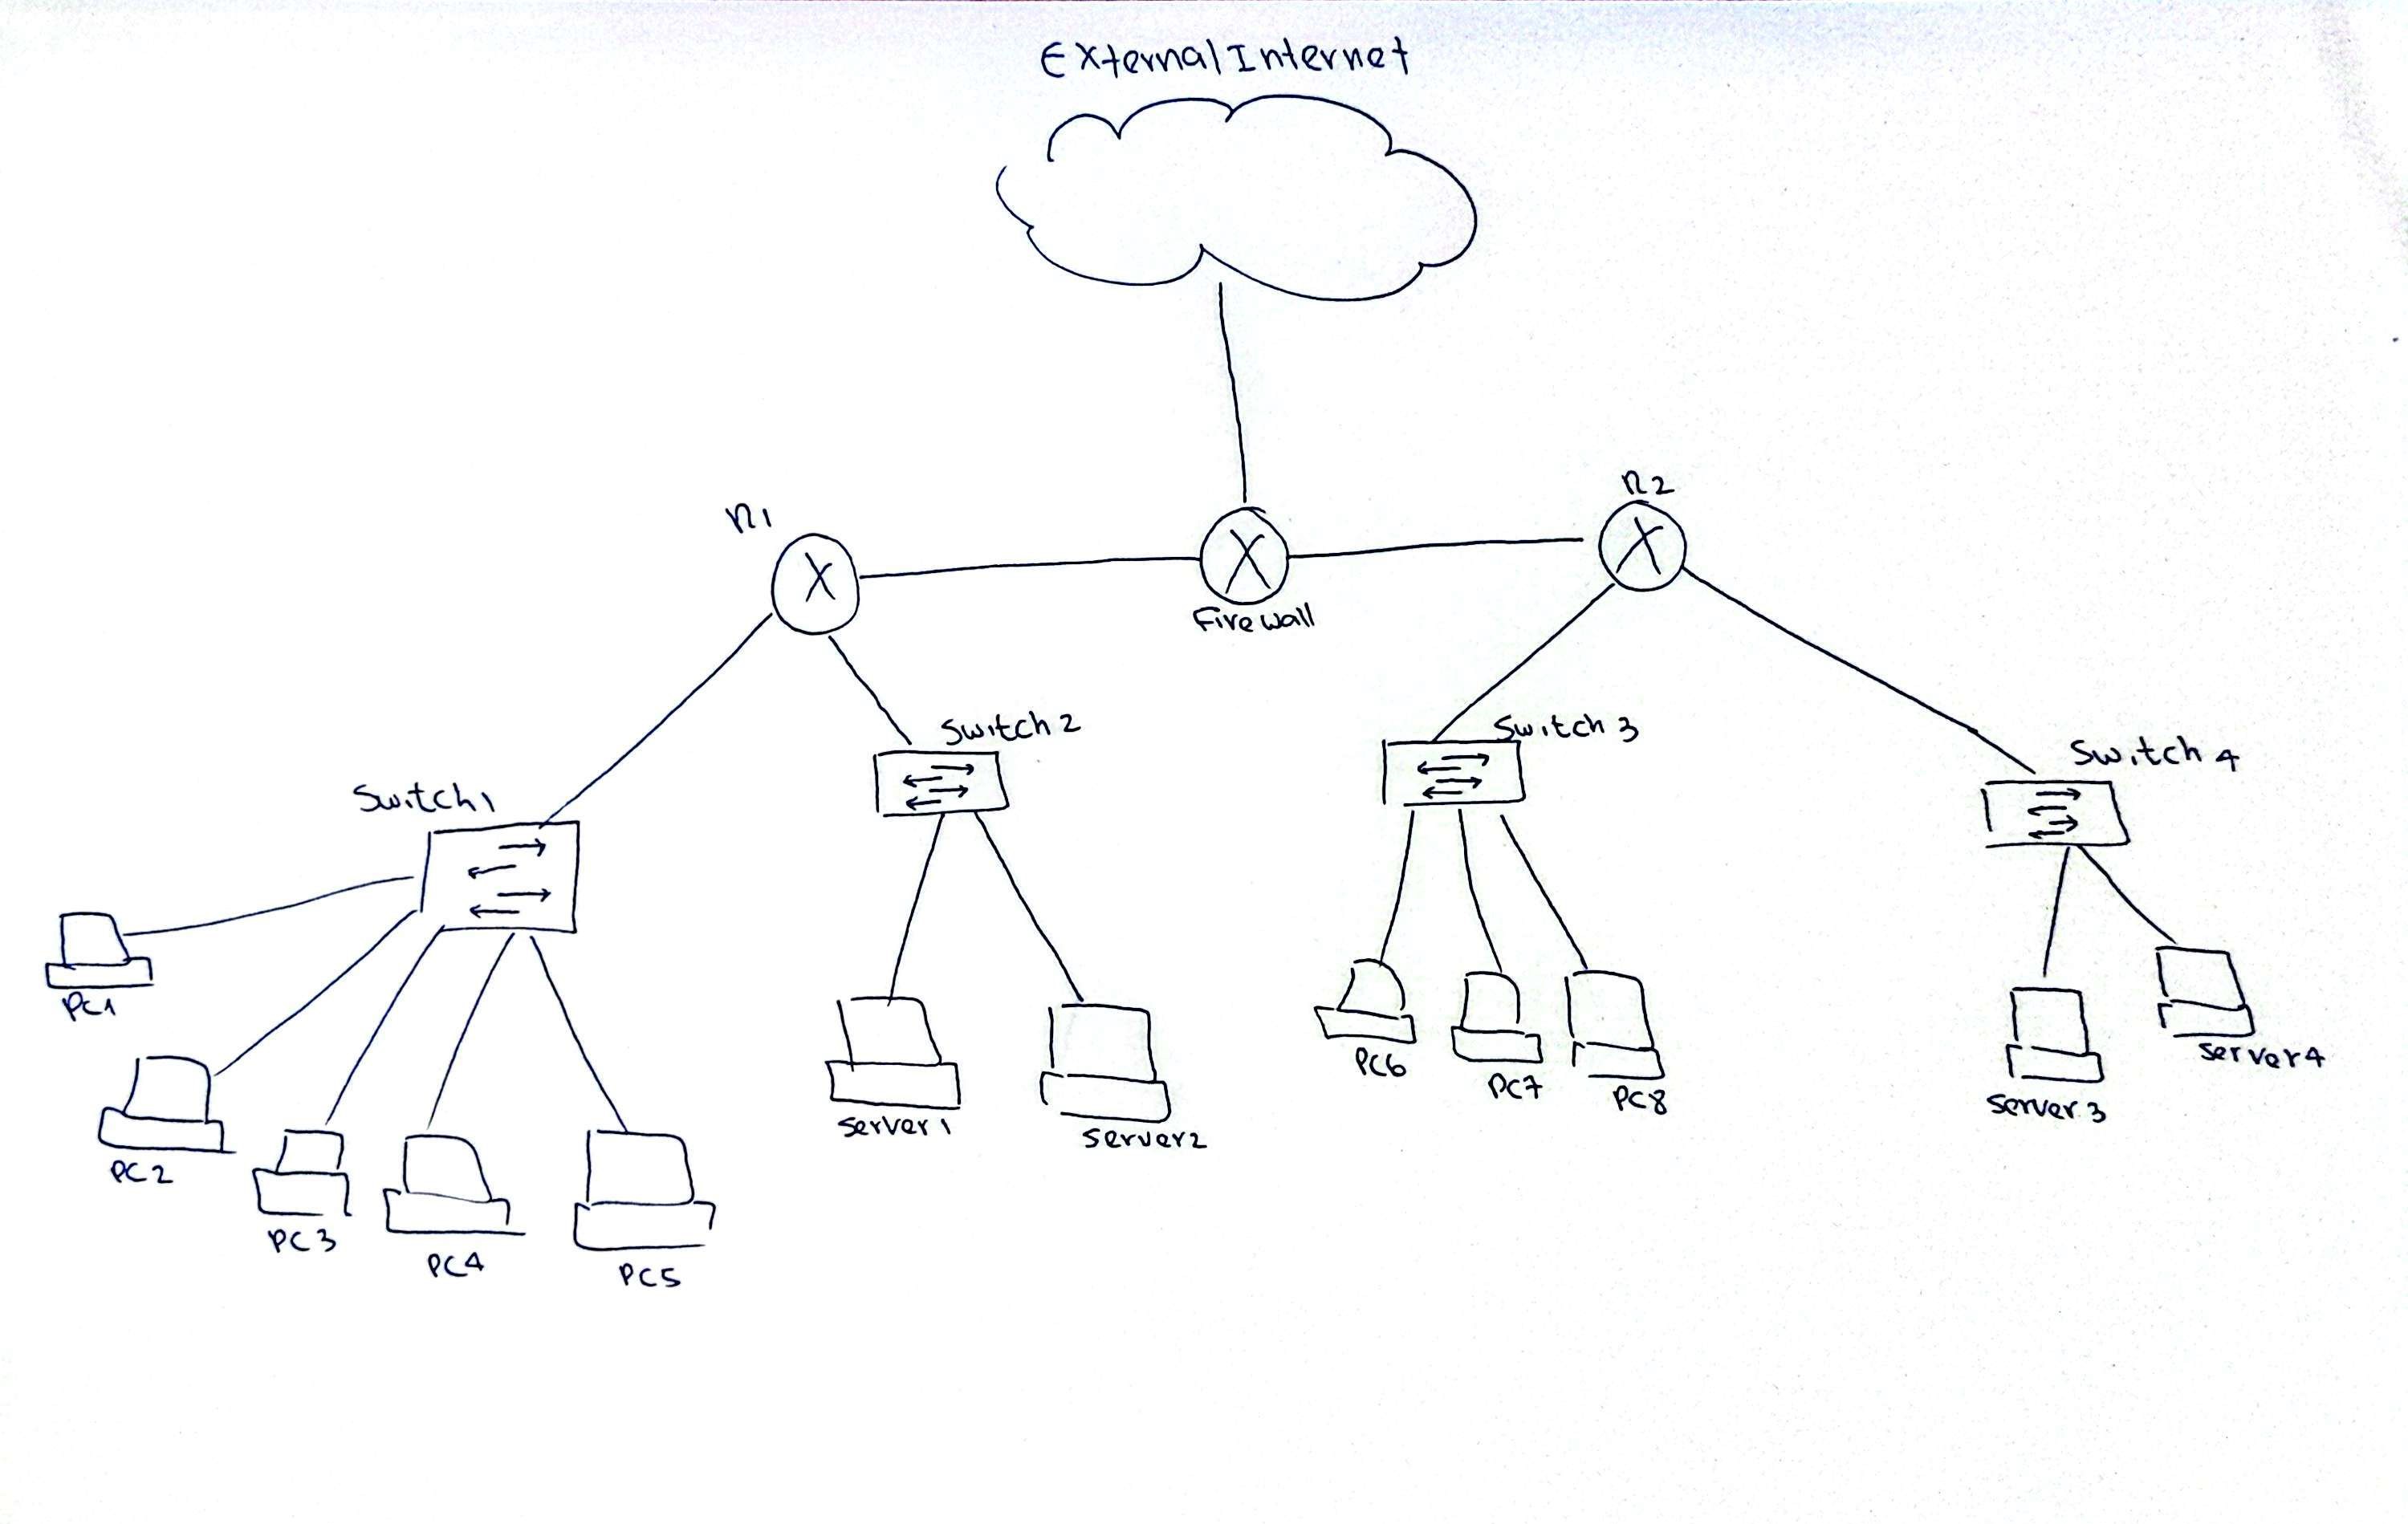 External Internet
R1
R2
Firewall
Switch1
Switch2
Switch3
Switch4
PC1
PC2
PC3
PC4
PC5
Server1
Server2
PC6
PC7
PC8
Server3
Server4